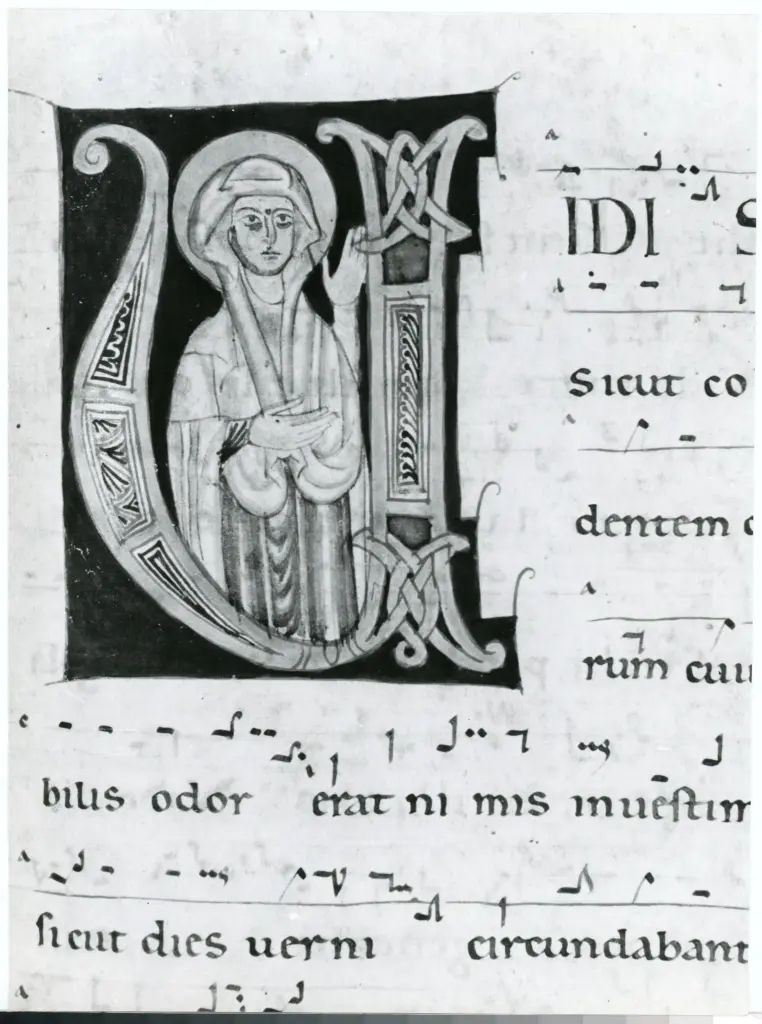 VIDI S
Sicut co
dentem
rum cuiu
bilis odor erat nimis inuestim
sicut dies uerni circundabant